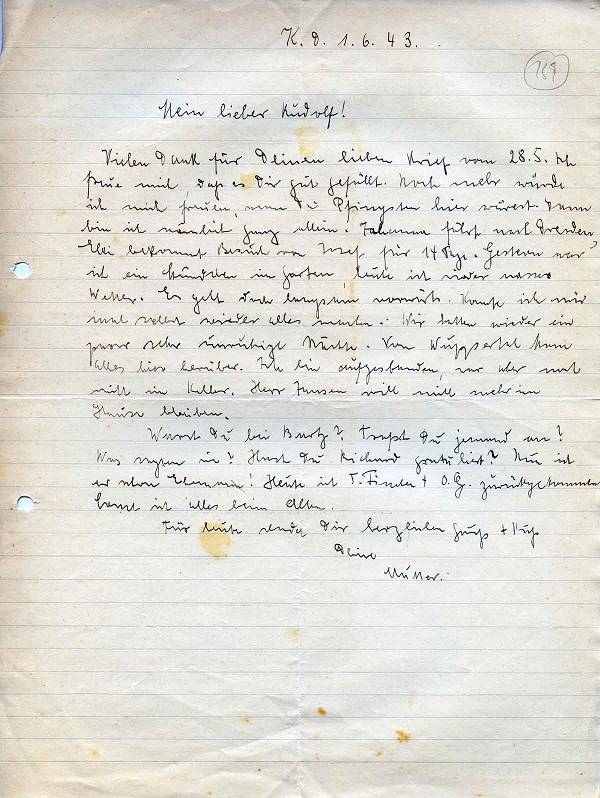 K. D. 1. 6. 43.
159
Mein lieber Rudolf!
Vielen Dank für Deinen lieben Brief vom 28.5. Ich
freue mich, daß es Dir gut gefällt. Noch mehr würde
ich mich freuen, wenn Du Pfingsten hier wärest. Dann
bin ich nämlich ganz allein. Johanna fährt nach Dresden,
Elli bekommt Besuch von Josef für 14 Tge. Gestern war
ich ein Stündchen im Garten, heute ist wieder nasses
Wetter. Es geht doch langsam vorwärts. Konnte ich mir
mal selbst wieder alles machen. Wir hatten wieder ein
paar sehr unruhige Nächte. Von Wuppertal kam
alles hier herüber. Ich bin aufgestanden, war aber noch
nicht im Keller. Herr Jansen will nicht mehr im
Hause bleiben.
Warst Du bei Bartz? Trafst Du jemand an?
Was sagten sie? Hast Du Richard gratuliert? Nun ist
er schon Ehemann! Heute ist T. + O. G. zurückgekommen
Sonst ist alles beim Alten.
Für heute sendet Dir herzlichen Gruß + Kuß
Deine
Mutter.